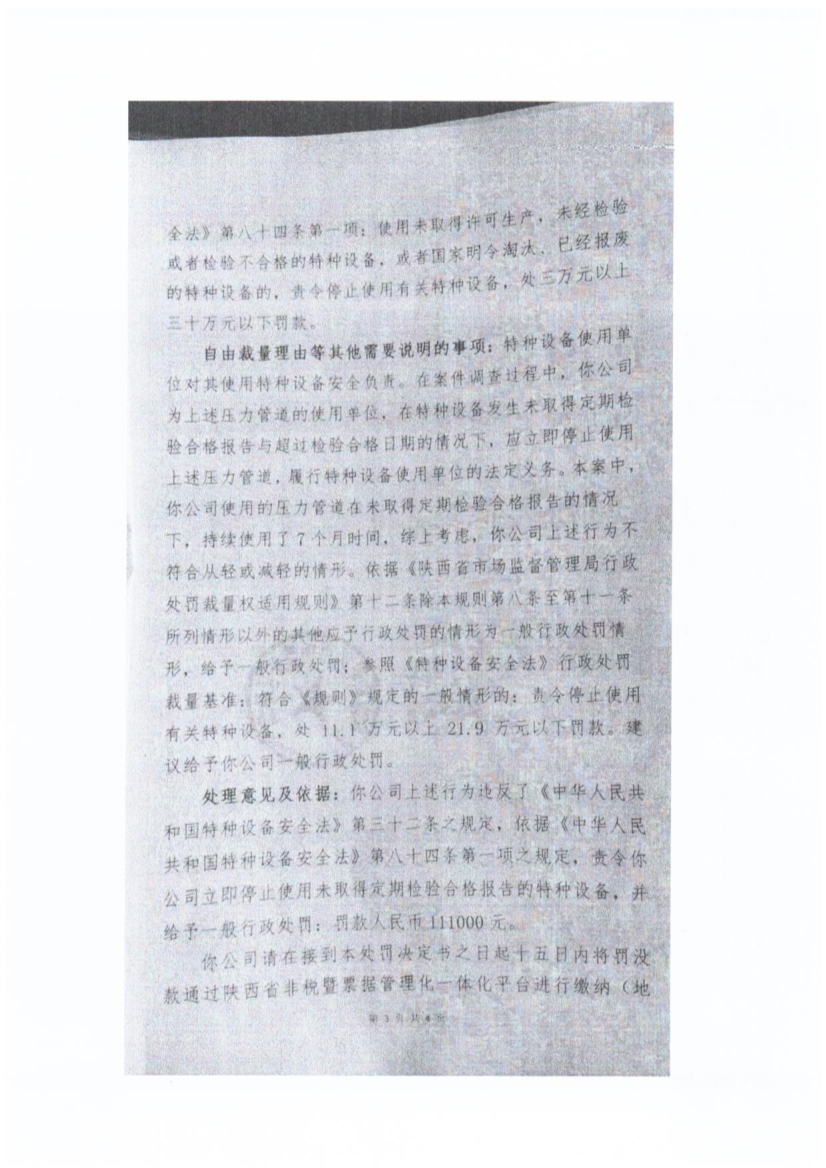 全法》第八十四条第一项：使用未取得许可生产，未经检验
或者检验不合格的特种设备，或者国家明令淘汰、已经报废
的特种设备的，责令停止使用有关特种设备，处三万元以上
三十万元以下罚款。
自由裁量理由等其他需要说明的事项：特种设备使用单
位对其使用特种设备安全负责。在案件调查过程中，你公司
为上述压力管道的使用单位，在特种设备发生未取得定期检
验合格报告与超过检验合格日期的情况下，应立即停止使用
上述压力管道，履行特种设备使用单位的法定义务。本案中，
你公司使用的压力管道在未取得定期检验合格报告的情况
下，持续使用了7个月时间，综上考虑，你公司上述行为不
符合从轻或减轻的情形。依据《陕西省市场监督管理局行政
处罚裁量权适用规则》第十二条除本规则第八条至第十一条
所列情形以外的其他应予行政处罚的情形为一般行政处罚情
形，给予一般行政处罚；参照《特种设备安全法》行政处罚
裁量基准：符合《规则》规定的一般情形的：责令停止使用
有关特种设备，处 11.1 万元以上 21.9 万元以下罚款。建
议给予你公司一般行政处罚。
处理意见及依据：你公司上述行为违反了《中华人民共
和国特种设备安全法》第三十二条之规定，依据《中华人民
共和国特种设备安全法》第八十四条第一项之规定，责令你
公司立即停止使用未取得定期检验合格报告的特种设备，并
给予一般行政处罚：罚款人民币111000元。
你公司请在接到本处罚决定书之日起十五日内将罚没
款通过陕西省非税暨票据管理化一体化平台进行缴纳（地
第 3 页 共 4 页